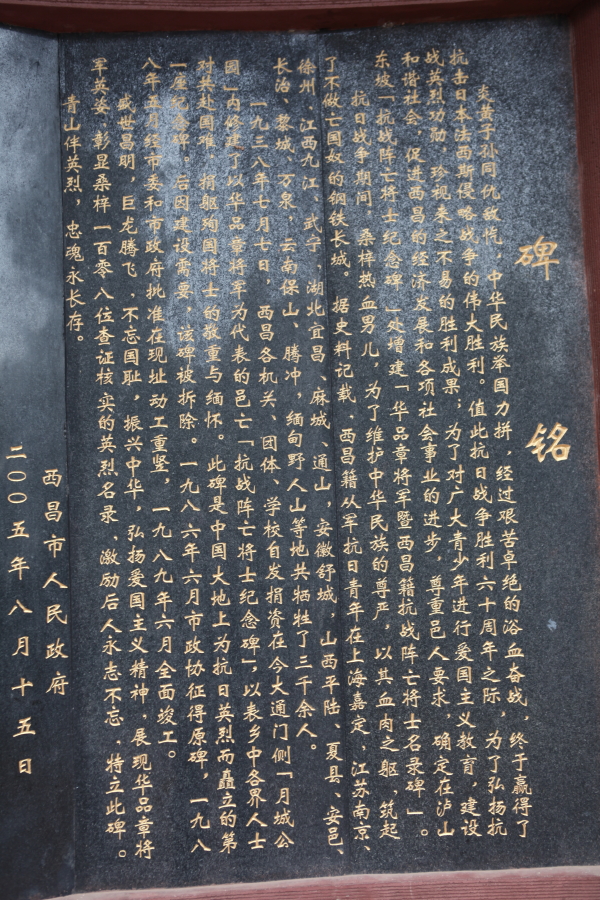 碑铭
炎黄子孙同仇敌忾，中华民族举国力拼，经过艰苦卓绝的浴血奋战，终于赢得了
抗击日本法西斯侵略战争的伟大胜利。值此抗日战争胜利六十周年之际，为了弘扬抗
战英烈功勋，珍视来之不易的胜利成果；为了对广大青少年进行爱国主义教育，建设
和谐社会，促进西昌的经济发展和各项社会事业的进步，尊重邑人要求，确定在泸山
东坡「抗战阵亡将士纪念碑」处增建「华品章将军暨西昌籍抗战阵亡将士名录碑」。
抗日战争期间，桑梓热血男儿，为了维护中华民族的尊严，以其血肉之躯，筑起
了不做亡国奴的钢铁长城。据史料记载，西昌籍从军抗日青年在上海嘉定、江苏南京、
徐州，江西九江、武宁，湖北宜昌、麻城、通山，安徽舒城，山西平陆、夏县、安邑、
长治、黎城、万泉，云南保山、腾冲，缅甸野人山等地共牺牲了三千余人。
一九三八年七月七日，西昌各机关、团体、学校自发捐资在今大通门侧「月城公
园」内修建了以华品章将军为代表的邑亡「抗战阵亡将士纪念碑」，以表乡中各界人士
对共赴国难，捐躯殉国将士的敬重与缅怀。此碑是中国大地上为抗日英烈而矗立的第
一座纪念碑。后因建设需要，该碑被拆除。一九八六年六月市政协征得原碑，一九八
八年五月经市委和市政府批准在现址动工重竖，一九八九年六月全面竣工。
盛世昌明，巨龙腾飞，不忘国耻，振兴中华，弘扬爱国主义精神，展现华品章将
军英姿，彰显桑梓一百零八位查证核实的英烈名录，激励后人永志不忘，特立此碑。
青山伴英烈，忠魂永长存。
西昌市人民政府
二〇〇五年八月十五日